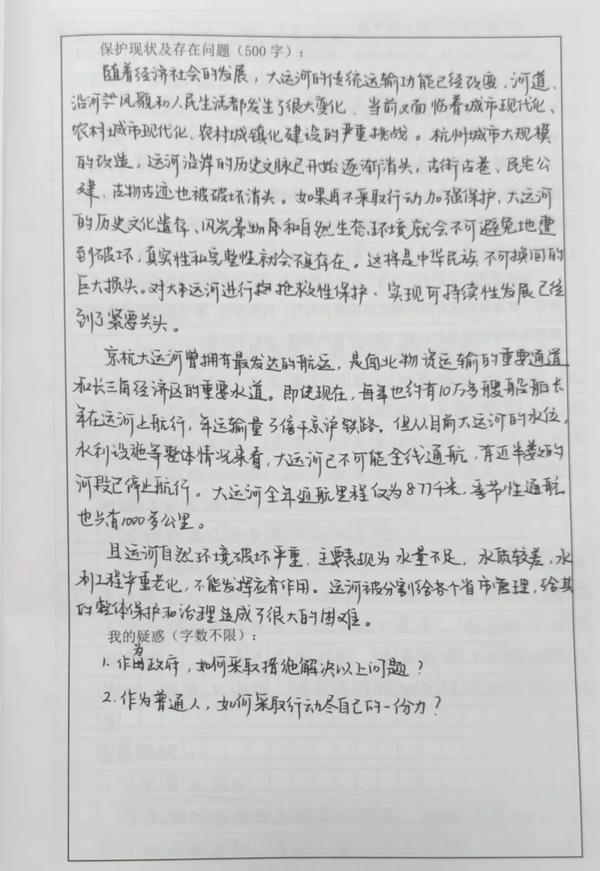 保护现状及存在问题（500字）：
随着经济社会的发展，大运河的传统运输功能已经改变，河道、
沿河风貌和人民生活都发生了很大变化，当前又面临着城市现代化、
农村城市现代化、农村城镇化建设的严重挑战。杭州城市大规模
的改造，运河沿岸的历史文脉已开始逐渐消失，古街古巷、民宅公
建、古物古迹也被破坏消失。如果再不采取行动加强保护，大运河
的历史文化遗存、风光景物和自然生态环境就会不可避免地遭
到破坏，真实性和完整性就会不复存在。这样是中华民族不可挽回的
巨大损失。对大运河进行抢救性保护、实现可持续性发展已经
到了紧要关头。
京杭大运河曾拥有最发达的航运，是南北物资运输的重要通道
和长三角经济区的重要水道。即使现在，每年也约有10万多艘船舶长
年在运河上航行，年运输量3倍于京沪铁路。但从目前大运河的水位，
水利设施等整体情况来看，大运河已不可能全线通航，有近半的
河段已停止航行。大运河全年通航里程仅为877千米，季节性通航
也只有1000多公里。
且运河自然环境破坏严重，主要表现为水量不足，水质较差，水
利工程严重老化，不能发挥应有作用。运河被分割给各个省市管理，给其
的整体保护和治理造成了很大的困难。
我的疑惑（字数不限）：
1. 作为政府，如何采取措施解决以上问题？
2. 作为普通人，如何采取行动尽自己的一份力？